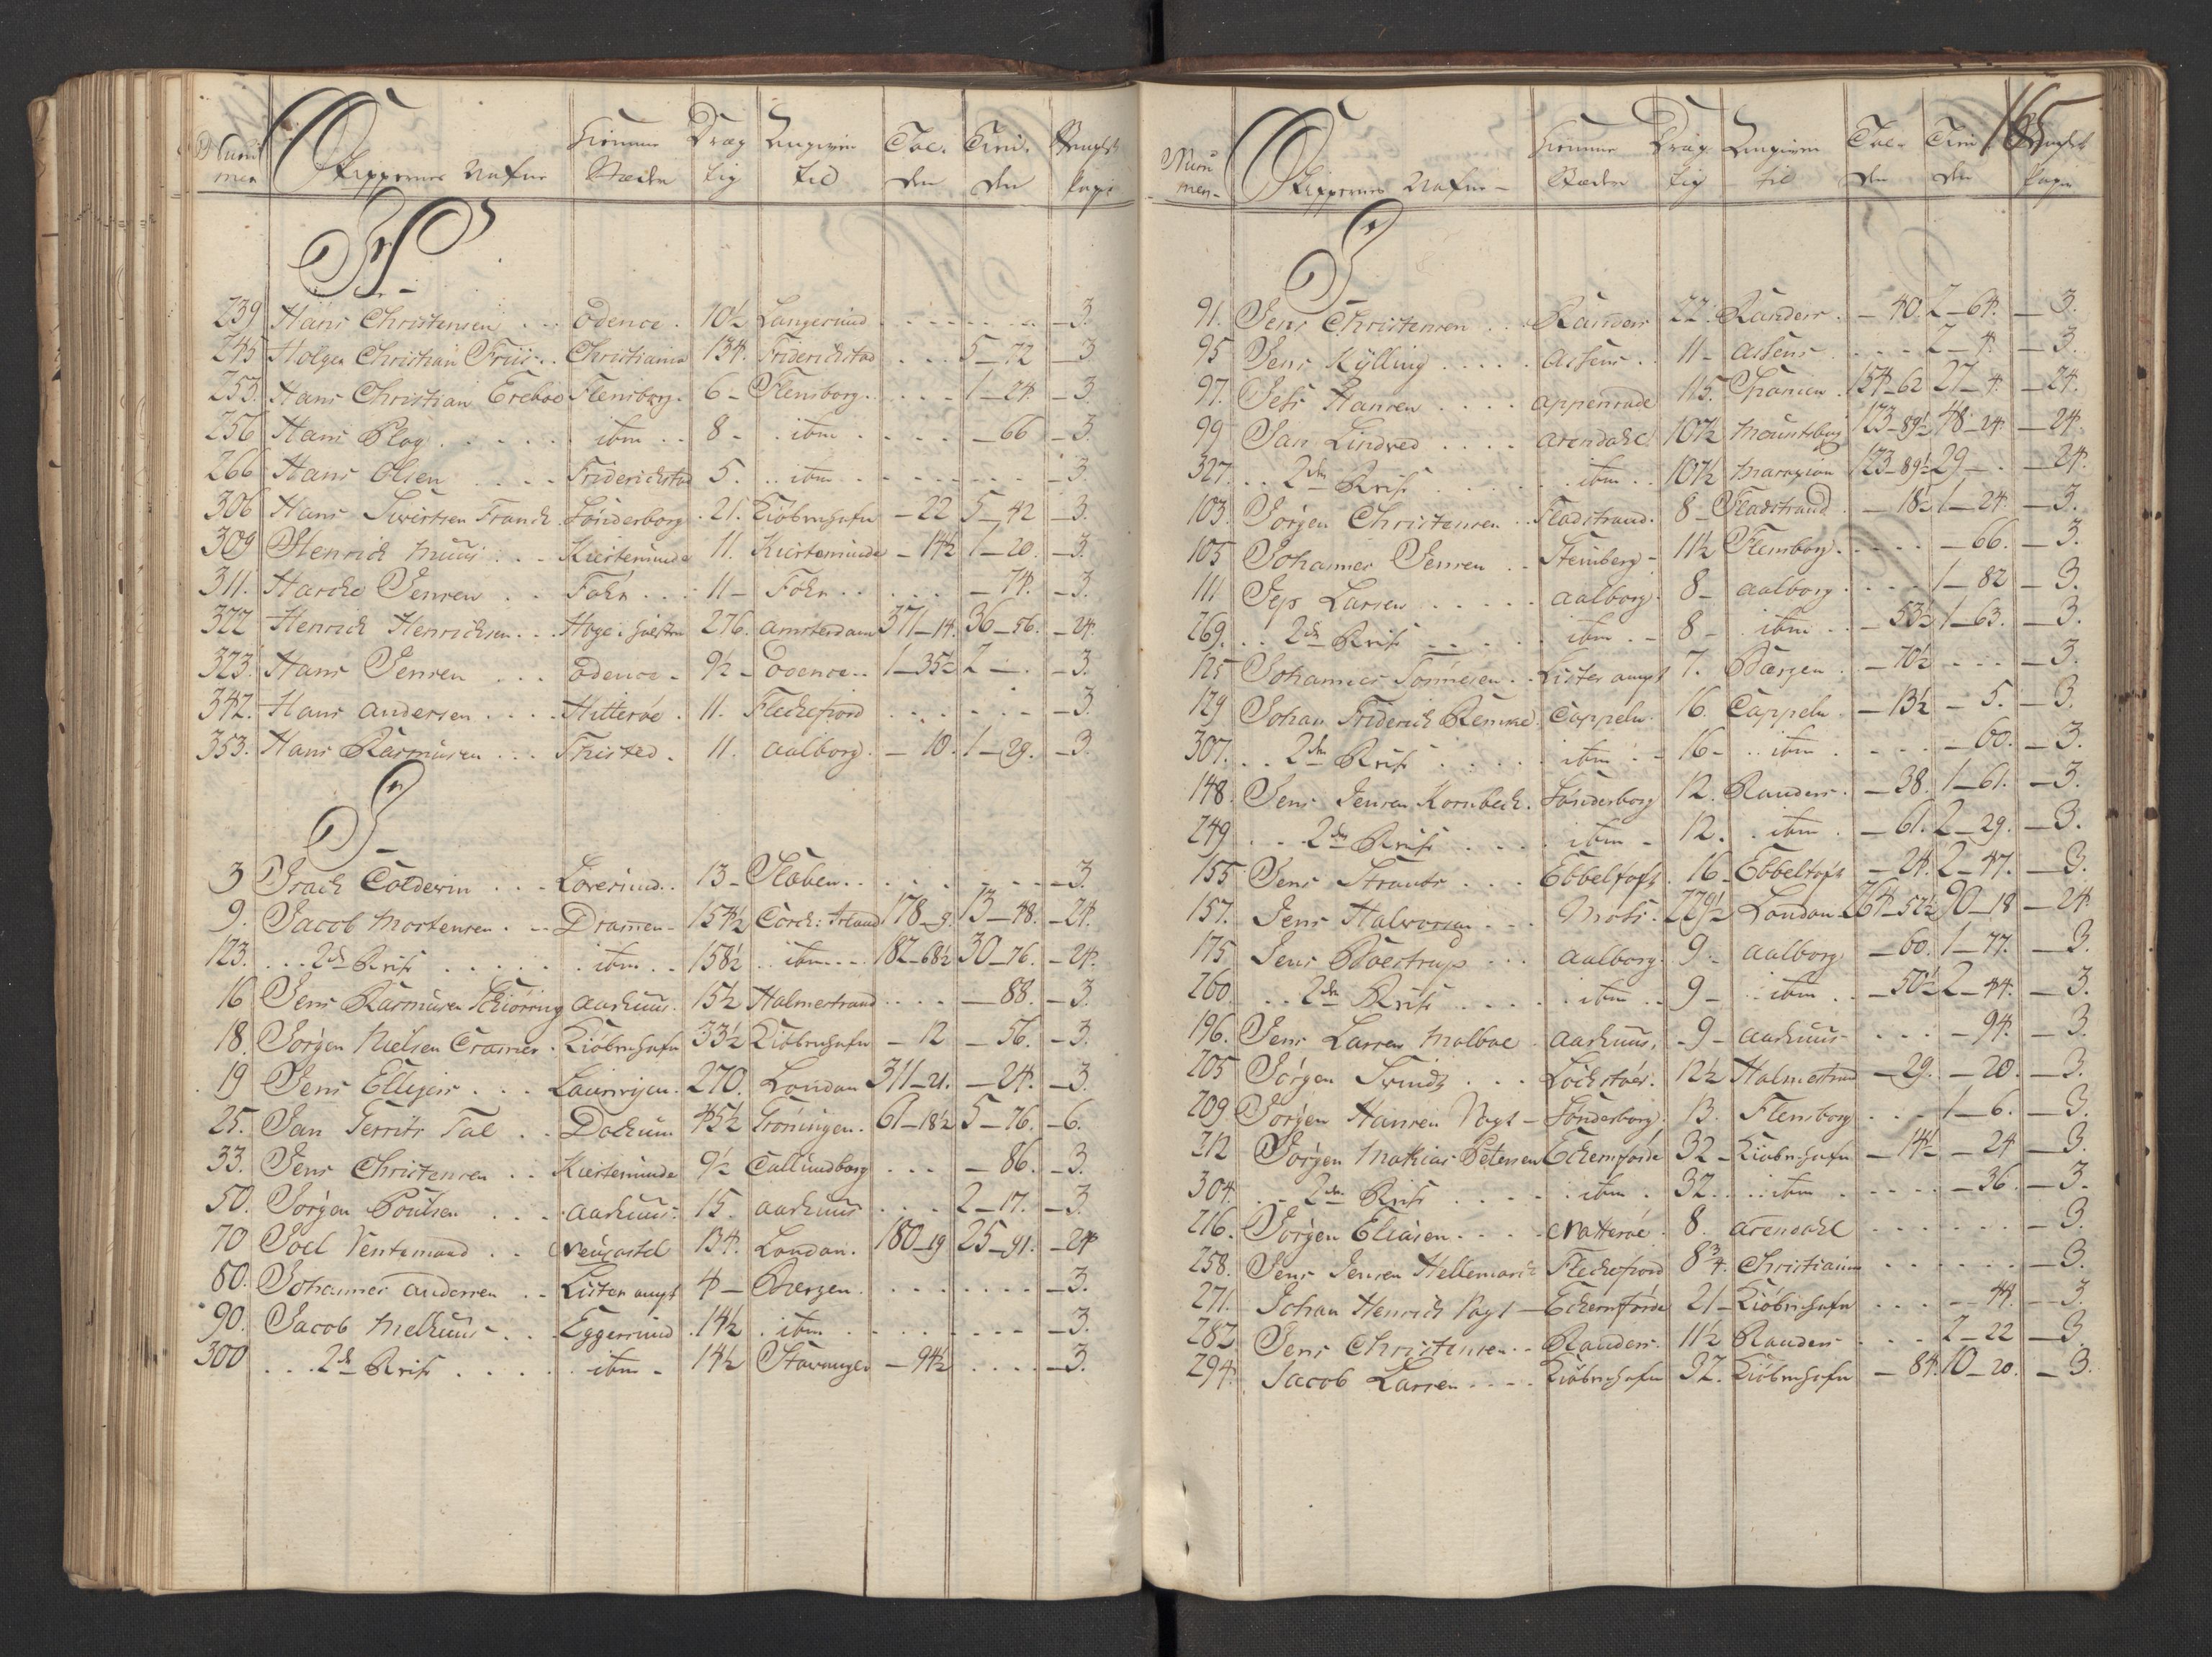 Num̃mer Skippernes Nafne Hiemme Stæder Dræg tig Angiven til Tolden Tienden
H
239 Hans Christensen Odence 10½ Langesund 3.
245 Holger Christian Friis Christiania 134. Friderichstad 5_72 3
253. Hans Christian Ereboe Flensborg 6 Flensborg 1_24 3.
256 Hans Plog ibm 8 ibm 66 3.
266 Hans Olsen Friderichstad 5. ibm 3.
306 Hans Siwertsen Franck Sönderborg 21. Kiöbenhafn 22 5_42 3.
309 Henrich Muus Kierteminde 11. Kierteminde 14½ 1_20. 3.
311. Harcke Jensen Föhr 11 Föhr 74. 3.
322 Henrich Henrichsen 276. Amsterdam 371_14. 36_56. 24.
323. Hans Jensen Odence 9½ Odence 1_35½ 2_ 3.
342. Hans Andersen Hitteröe 11. Fleckefiord 3.
353. Hans Rasmusen Thisted 11. Aalborg 10. 1_29. 3.
J
3 Isach Colderin 13 Staben 3.
9. Jacob Mortensen Dram̃en 154½ Corck: Irland 178_9. 13_48. 24.
123. 2de Reise ibm 158½ ibm 182_68½ 30_76. 24.
16 Jens Rasmusen Schiörring Aarhuus 15½ Holmestrand 88. 3.
18. Jörgen Nielsen Cramer Kiöbenhafn 33½ Kiöbenhafn 12 56. 3.
19 Jens Ellegers Laurvigen 270. London 311_21. 24. 3.
25. Jan Gerrits Tal Dockum 45½ Gröningen 61_18½ 5_76. 6.
33. Jens Christensen Kierteminde 9½ Callundborg 86. 3.
50. Jörgen Poulsen Aarhuus 15. Aarhuus 2_17. 3.
70 Joel Ventemand Neucastel 134. London 180_19 25_91. 24
80. Johannes Andersen Lister Ampt 4 Bergen 3.
90. Jacob Melhuus Eggersund 14½ ibm 3.
300 2de Reise ibm 14½ Stavanger 94½ 3.
165
Num̃mer Skippernes Nafne Hiemme Stæder Dræg tig Angiven til Tolden Tienden
J
91. Jens Christensen Ran̄ders 22. Randers 40. 2_64. 3.
95 Jens Kylling Assens 11 Assens 2_4. 3.
97. Jess Hansen Appenrade 115. Spanien 154_62 27_4. 24.
99 Jan Lindved Arendahl 107½ 123_89½ 48_24 24.
327. 2den Reise ibm 107½ 123_89½ 29_ 24.
103. Jörgen Christensen Fladstrand 8 Fladstrand 18½ 1_24. 3.
105 Johannes Jensen Steinberg 11½ Flensborg 66. 3.
111 Jep Larsen Aalborg 8 Aalborg 1_82 3.
269. 2de Reise ibm 8 ibm 53½ 1_63. 3.
125 Johannes Tönnesen Lister Ampt 7. Bergen 70½ 3.
129 Johan Friderich Remme Cappeln 16. Cappeln 13½ 5. 3.
307. 2den Reise ibm 16 ibm 60. 3.
148. Jens Jensen Kornbeck Sönderborg 12. Randers 38. 1_61. 3.
249 2den Reise ibm 12. ibm 61. 2_29. 3.
155 Jens Straube Ebbeltoft 16 Ebbeltoft 24. 2_47. 3.
157. Jens Halvorsen Moss 229½ London 264_52½ 90_18 24
175 Jens Boestrup Aalborg 9 Aalborg 60. 1_77. 3.
260. 2den Reise ibm 9 ibm 50½ 2_44. 3.
196. Jens Larsen Malboe Aarhuus 9 Aarhuus 94. 3.
205 Jörgen Trundz Löchstöer 12½ Holmestrand 29. 20. 3.
209 Jörgen Hansen Vogt Sönderborg 13. Flensborg 1_6. 3.
212 Jörgen Mathias Petersen Eckernförde 32 Kiöbenhafn 14½ 24 3.
304. 2den Reise ibm 32. ibm 36. 3.
216. Jörgen Eliasen Natteröe 8. Arendahl 3.
258. Jens Jensen Hellemarck Fleckefiord 8¾. Christiania 3.
271. Johan Henrich Vogt Eckernförde 21 Kiöbenhafn 44. 3
282. Jens Christensen Randers 11½ Randers 2_22 3
294. Jacob Larsen Kiöbenhafn 32. Kiöbenhafn 84. 10_20. 3.